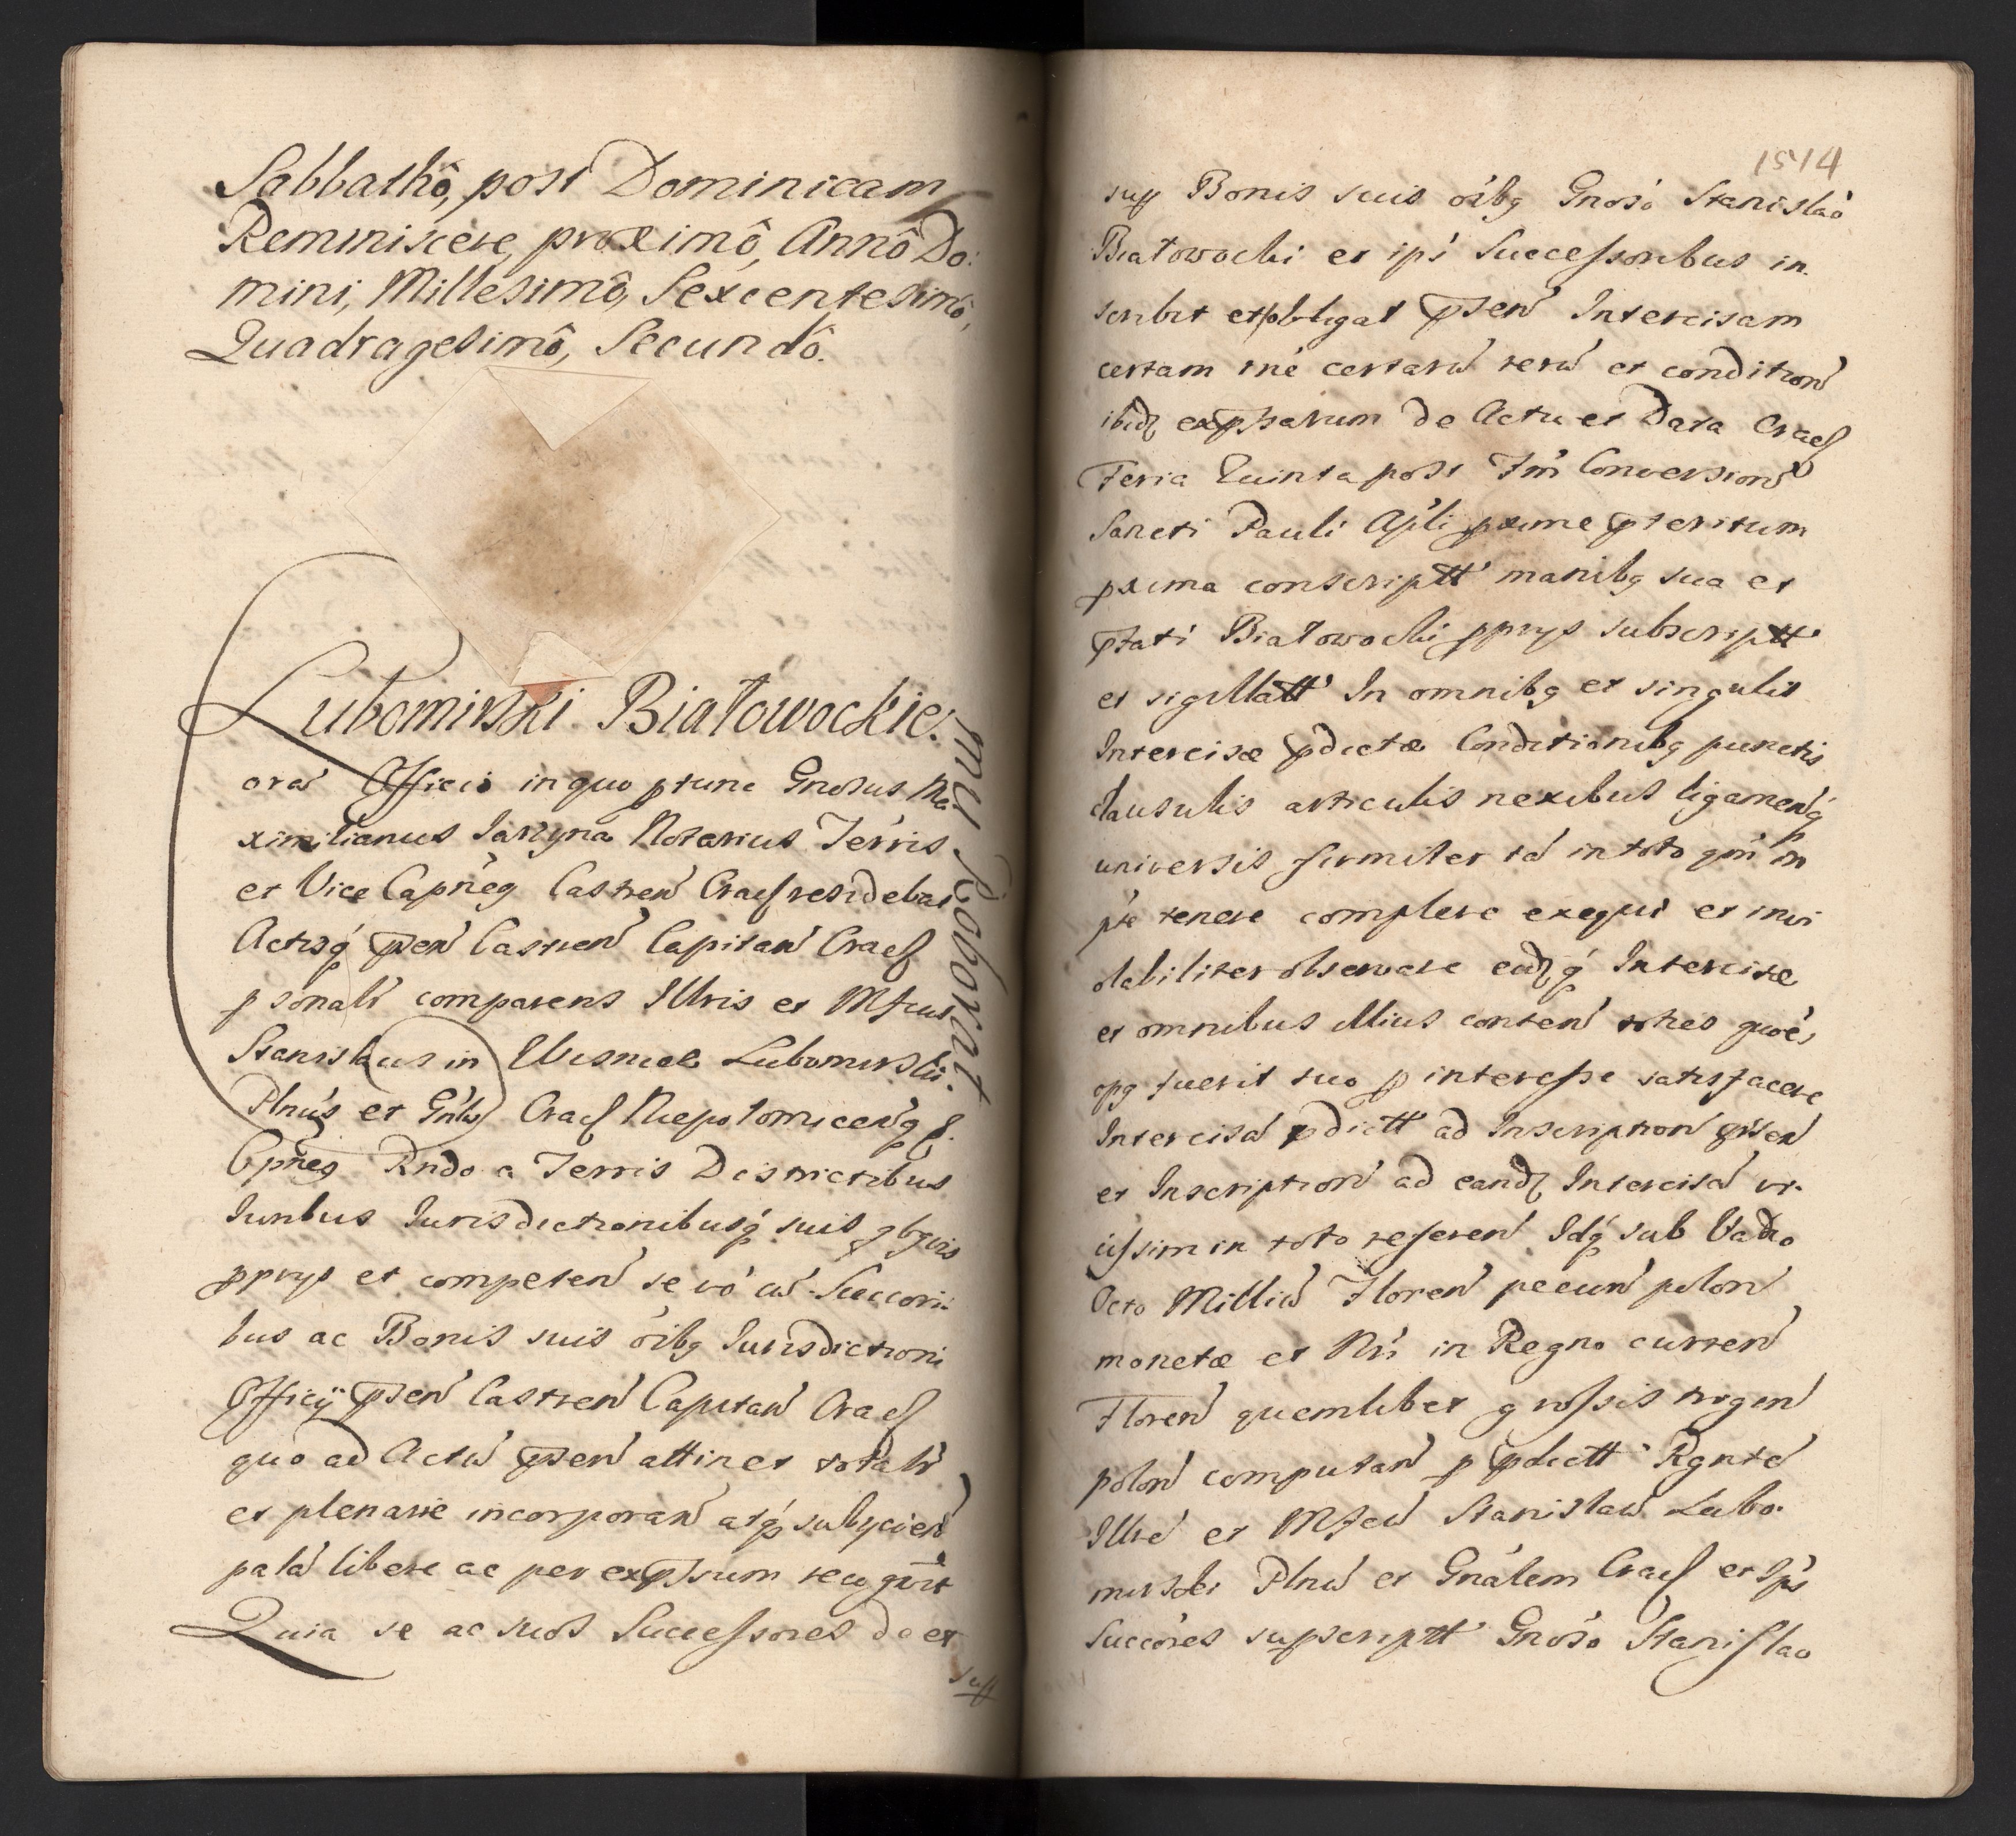 Sabbathô, post Dominicam
Reminiscere, proximô, Annô Do:
mini, Millesimô, Sexcentesimô,
Quadragesimô, Secundô.
Lubomirski Białowockie:
mu Roborat
Officio in quo ptunc Gnosus Ma
ximilianus Jarzyna Notarius Terris
et Vice Capneg Castren Cracf residebat
Actisq pñsen Castren Capitan Cracf
psonalr comparens Illris et Mfcus
Stanislaus in Wisnicze Lubomirski
Plnús et Gnlis Cracf Niepolomicenq
Cpneg Rndo a Terris Districtibus
Iuribus Iurisdictionibusq́ suis qbgvis
pprys et competen se vó cu Succori
bus ac Bonis suis óibg Iurisdictioni
Officÿ pñsen Castren Capitan Cracf
quo ad Actũ pñsen attinet totalr
et plenarie incorporan atq́ subycien
pala libere ac per expssum recognvit
Quia se ac suos Successores de et
sup
1514
sup Bonis suis óibg Gnosó Stanislaó
Białowocki et ipsí Successoribus in
scribit et obligat pñsen Intercisam
certam certaru reru et condition
ibidz expssarum de Actu et Data Cracf
Feria Quinta post Fm Conversion
Sancti Pauli Apli pxime pteritum
pxima conscriptt manibg sua et
pfati Białowocki pprys subscriptt
et sigillatt In omnibg et singulis
Intercisæ pdictæ Conditionibg punctis
clausulis articulis nexibus ligamenq
universis firmiter tá in toto qm in
pte tenere complere exequi et invi
olabiliter observare eidzq́ Intercisæ
et omnibus illius conten toties quoés
opg fuerit suo p interesse satisfacere
Intercisa pdictt ad Inscription pñsen
et Inscription ad eandz Intercisa vi
cissim in toto referen Idq́ sub Vadio
Octo Milliũ Floren pecun polon
monetæ et Nri in Regno curren
Floren quemlibet grossis trigin
polon computan p pdictt Rgnte
Illre et Mfcu Stanislau Lubo:
mirski Plnu et Gnálem Cracf et Ips
Succóres supscriptt Gnosó Stanislao